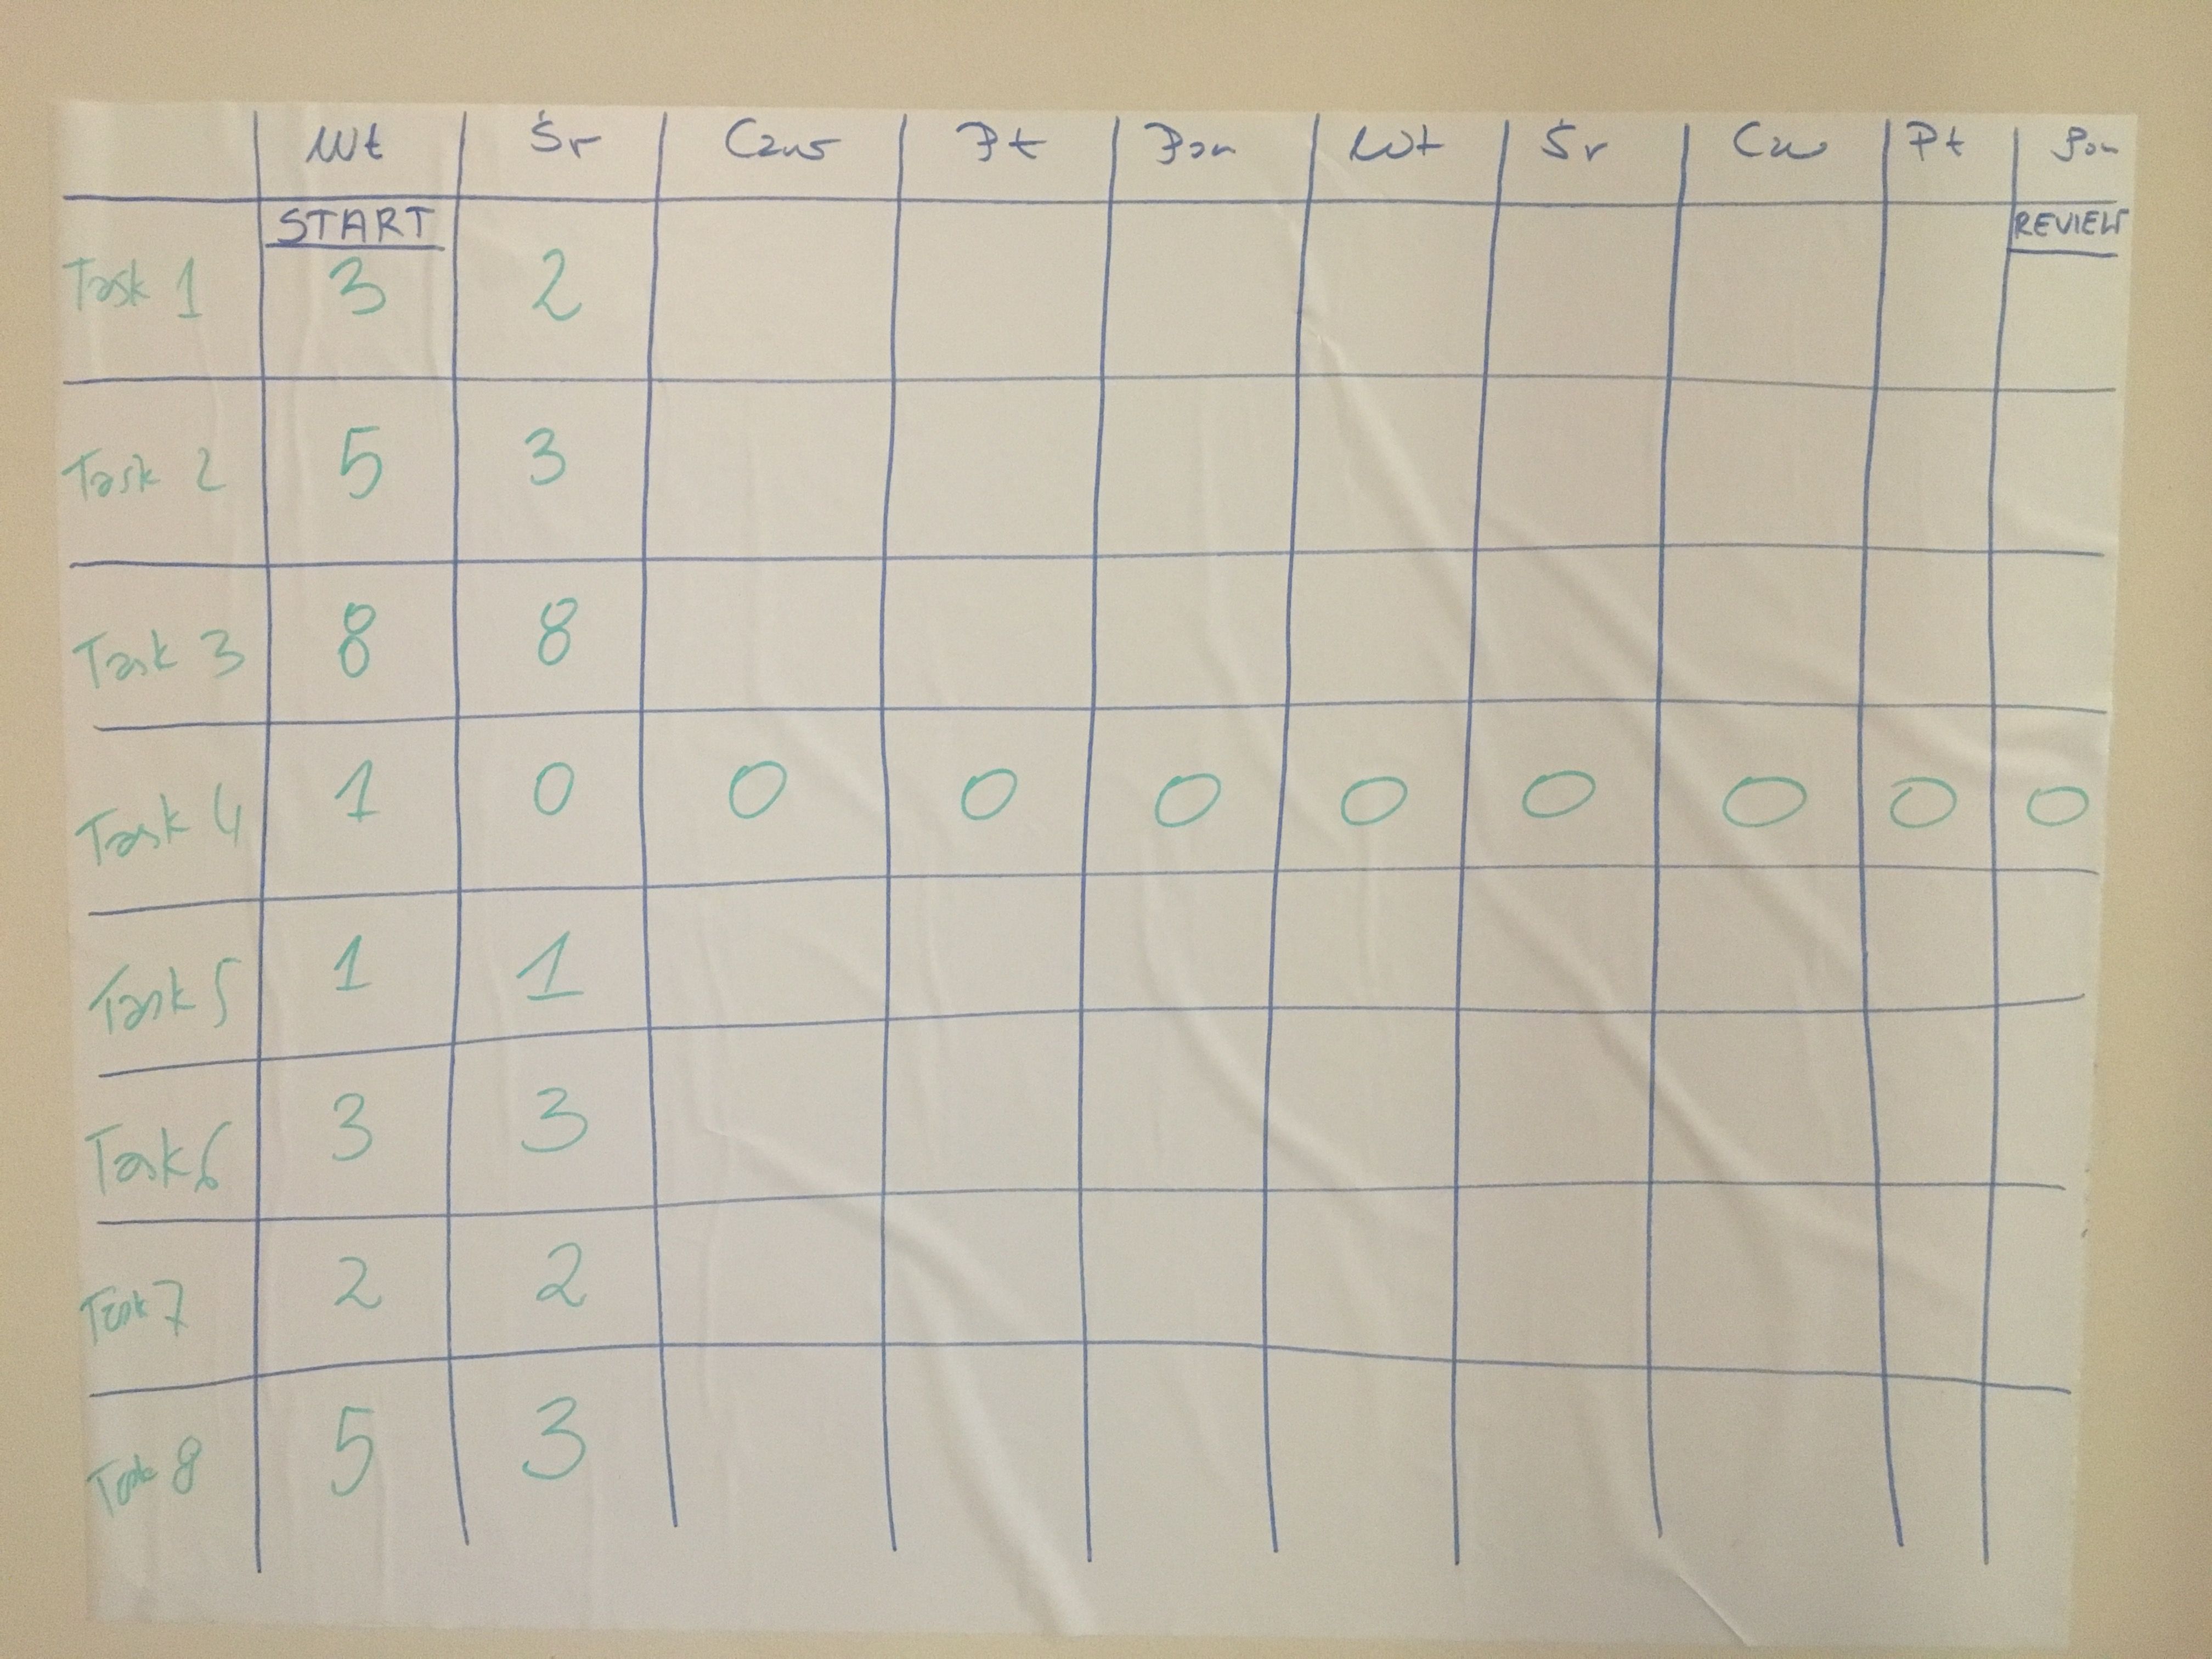 Wt Śr Czw Pt Pon Wt Śr Czw Pt Pon
START REVIEW
Task 1 3 2
Task 2 5 3
Task 3 8 8
Task 4 1 0 0 0 0 0 0 0 0 0
Task 5 1 1
Task 6 3 3
Task 7 2 2
Task 8 5 3